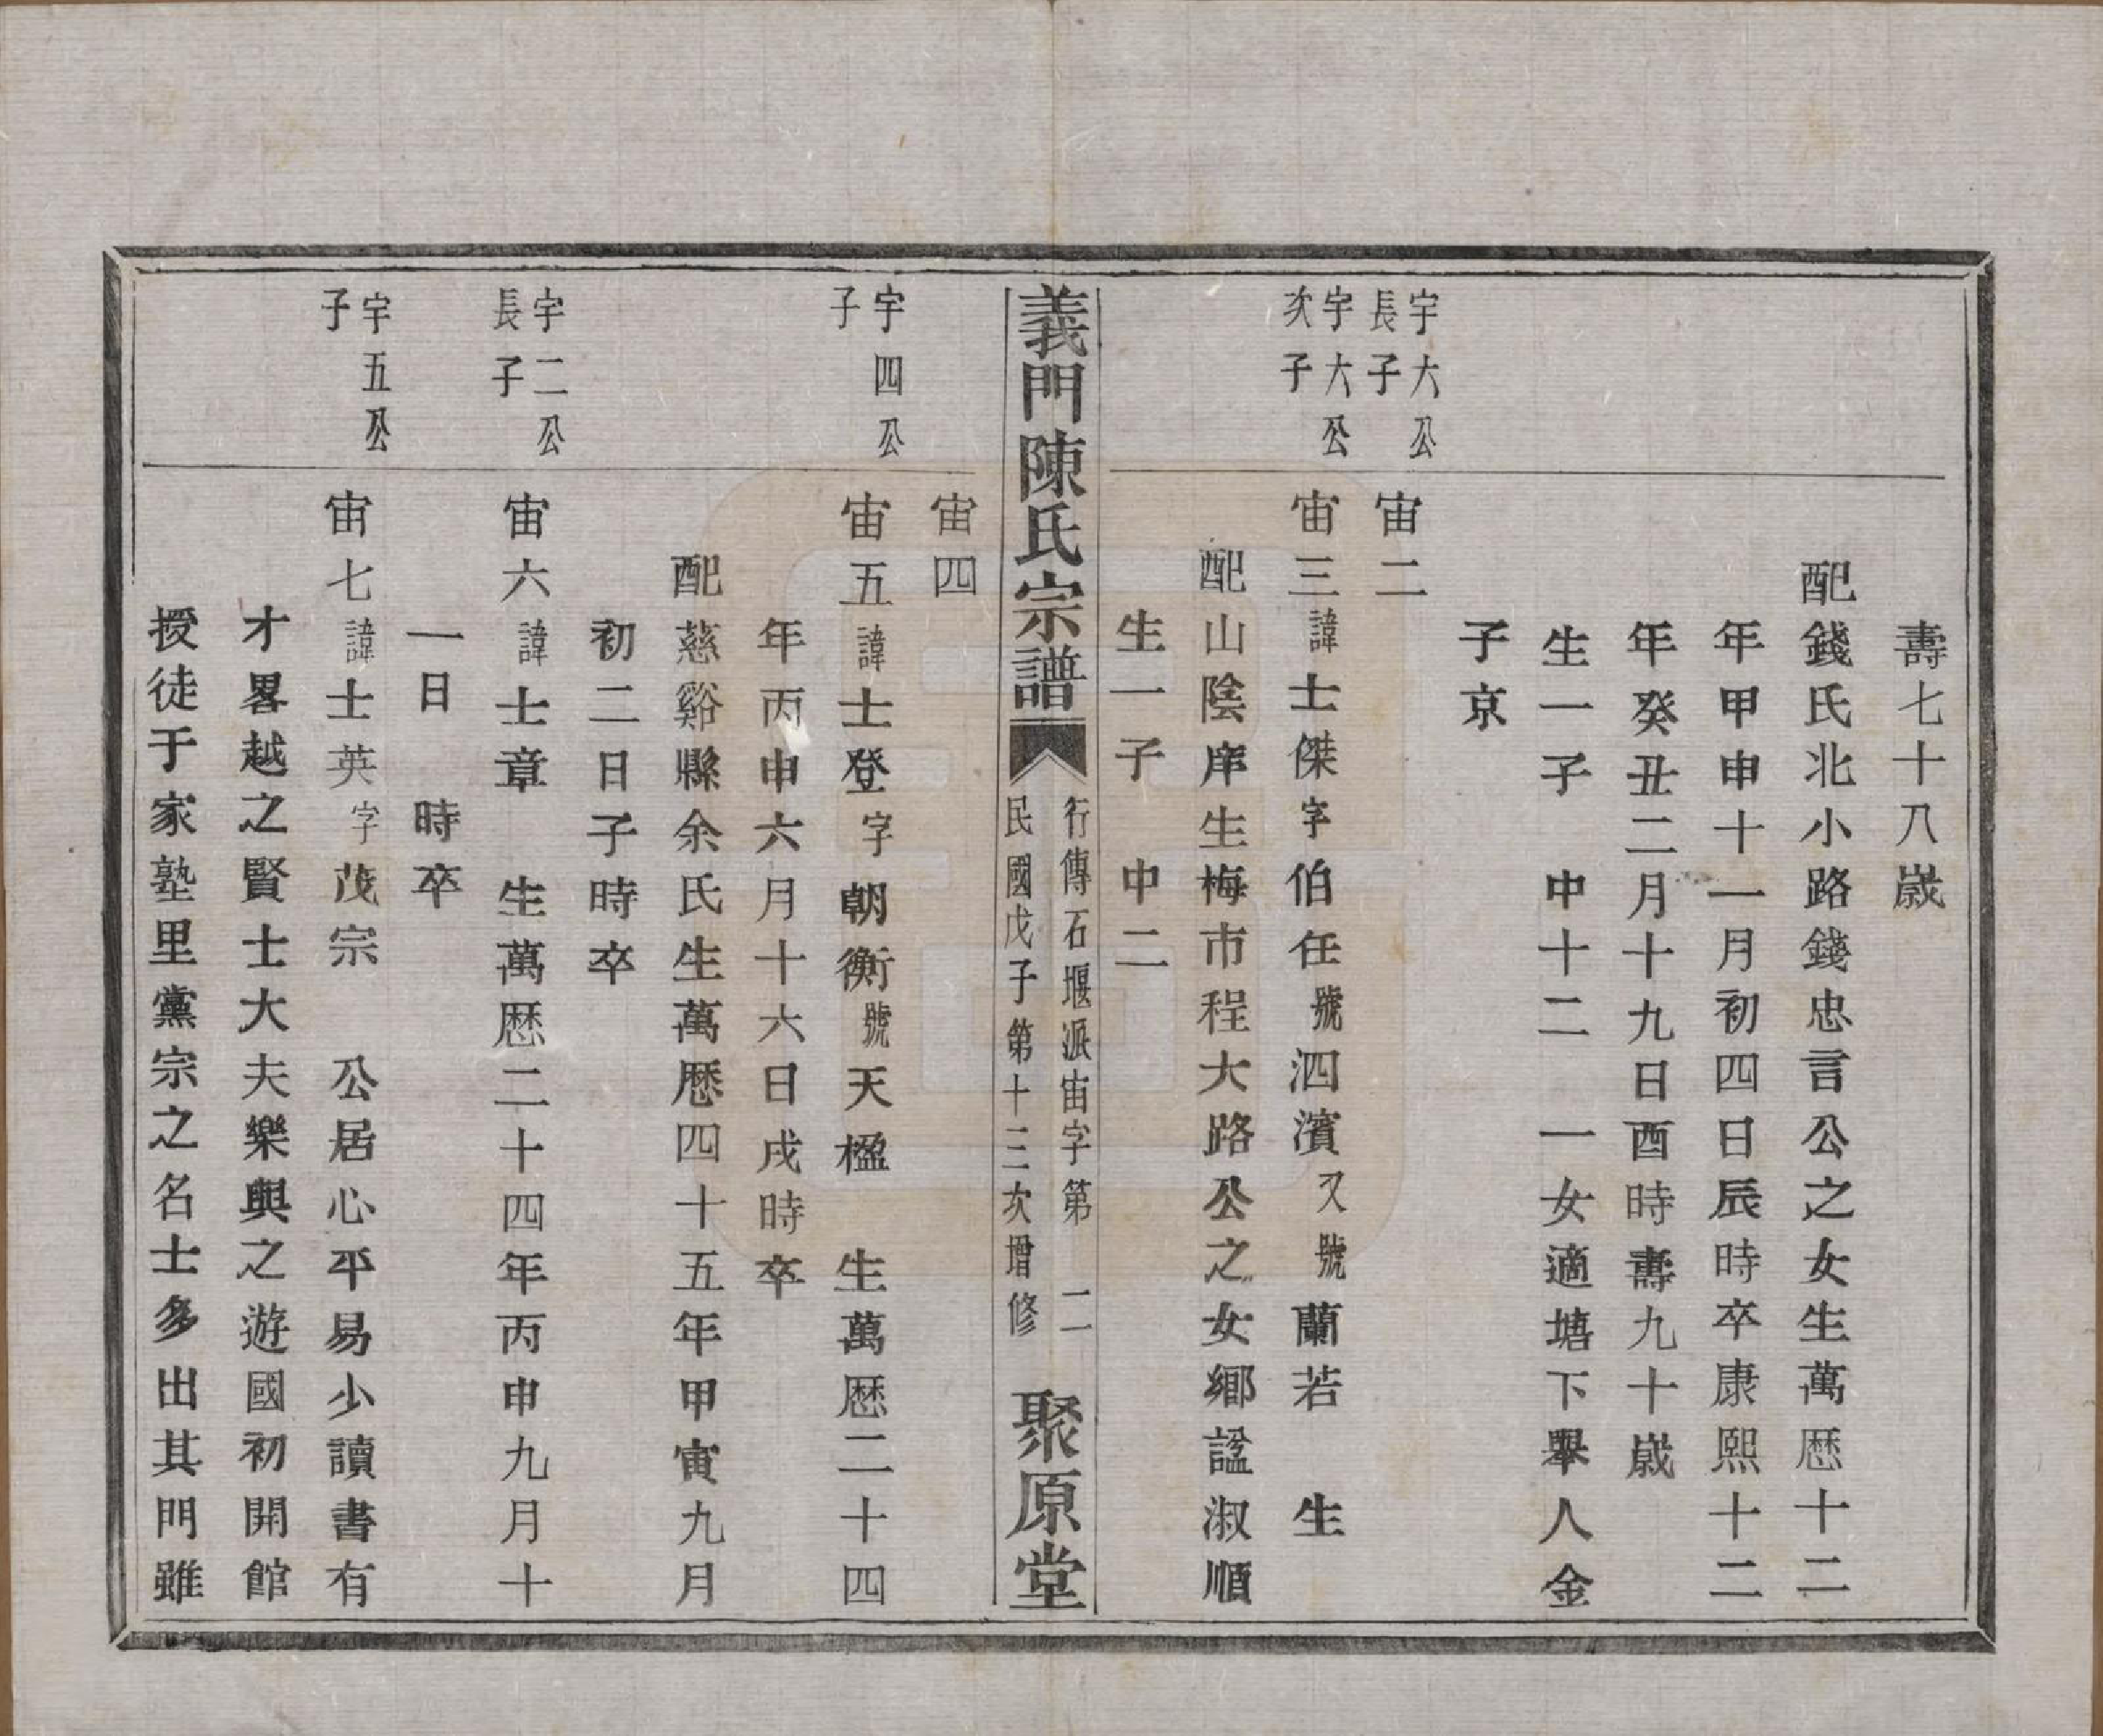 壽七十八歲
配錢氏北小路錢忠言公之女生萬歷十二
年甲申十一月初四日辰時卒康熙十二
年癸丑二月十九日酉時壽九十歲
生一子 中十二 一女適塘下舉人金
子京
宇大公
長子
宙二
宇大公
次子
宙三諱士傑字伯任號泗濱又號蘭若 生
配山陰庠生梅市程大路公之女鄉謚淑順
生一子 中二
義門陳氏宗譜
行傳石堰派宙字第 二
民國戊子第十三次增修
聚原堂
宙四
宇四公
子
宙五諱士登字朝衡號天楹 生萬歷二十四
年丙申六月十六日戌時卒
配慈谿縣余氏生萬歷四十五年甲寅九月
初二日子時卒
宇二公
長子
宙六諱士章 生萬歷二十四年丙申九月十
一日 時卒
宇五公
子
宙七諱士英字茂宗 公居心平易少讀書有
才畧越之賢士大夫樂與之遊國初開館
授徒于家塾里黨宗之名士多出其門雖